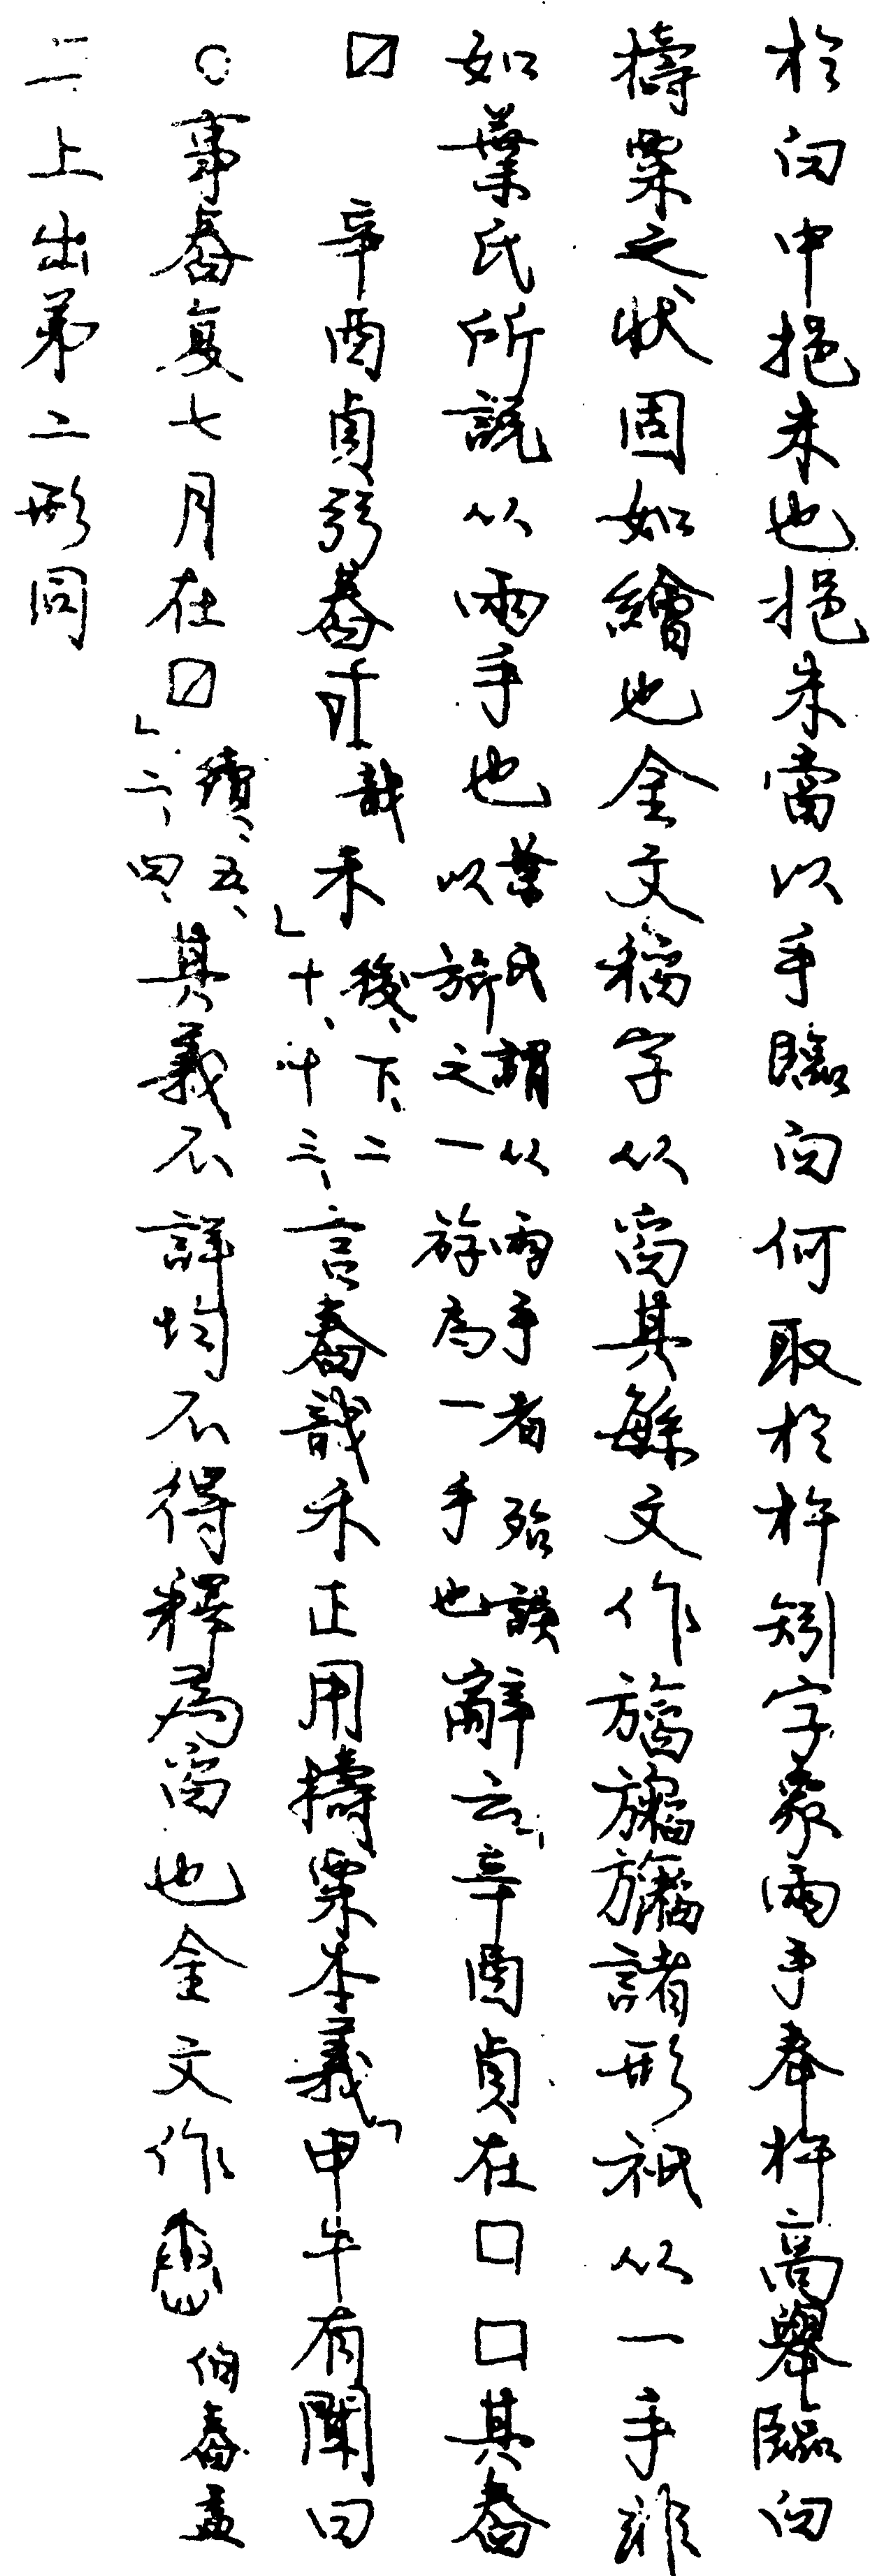 於臼中挹米也挹米當以手臨臼何取於杵矧字象兩手奉杵高舉臨臼
擣粟之狀固如繪也金文稻字从舀其緐文作諸形祇从一手非
如葉氏所說从兩手也葉氏謂从兩手者殆誤以旂之一斿為一手也辭云「辛酉貞在口口其舂
☑辛酉貞弜舂禾」後、下、二十、十三、言舂禾正用擣粟本義「甲午有聞曰
〇事舂复七月在☑」續、五、二、四、其義不詳均不得釋為舀也金文作伯舂盉
二、上出弟二形同